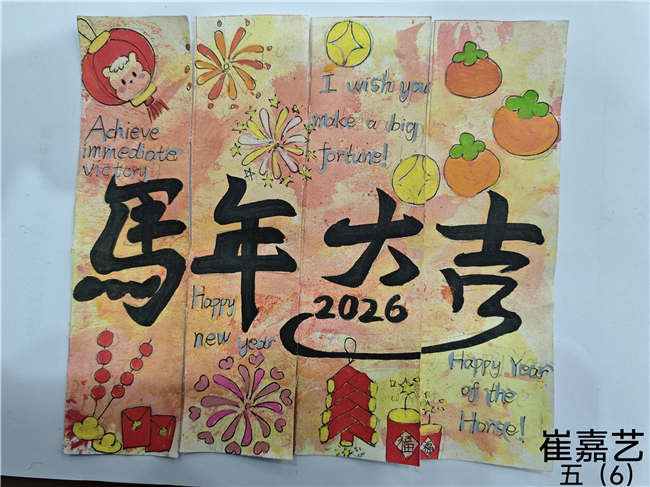 Achieve
immediate
victory
I wish you
make a big
fortune!
馬年大吉
2026
Happy
new year
Happy Year
of the
Horse!
福
福
崔嘉艺
五（6）